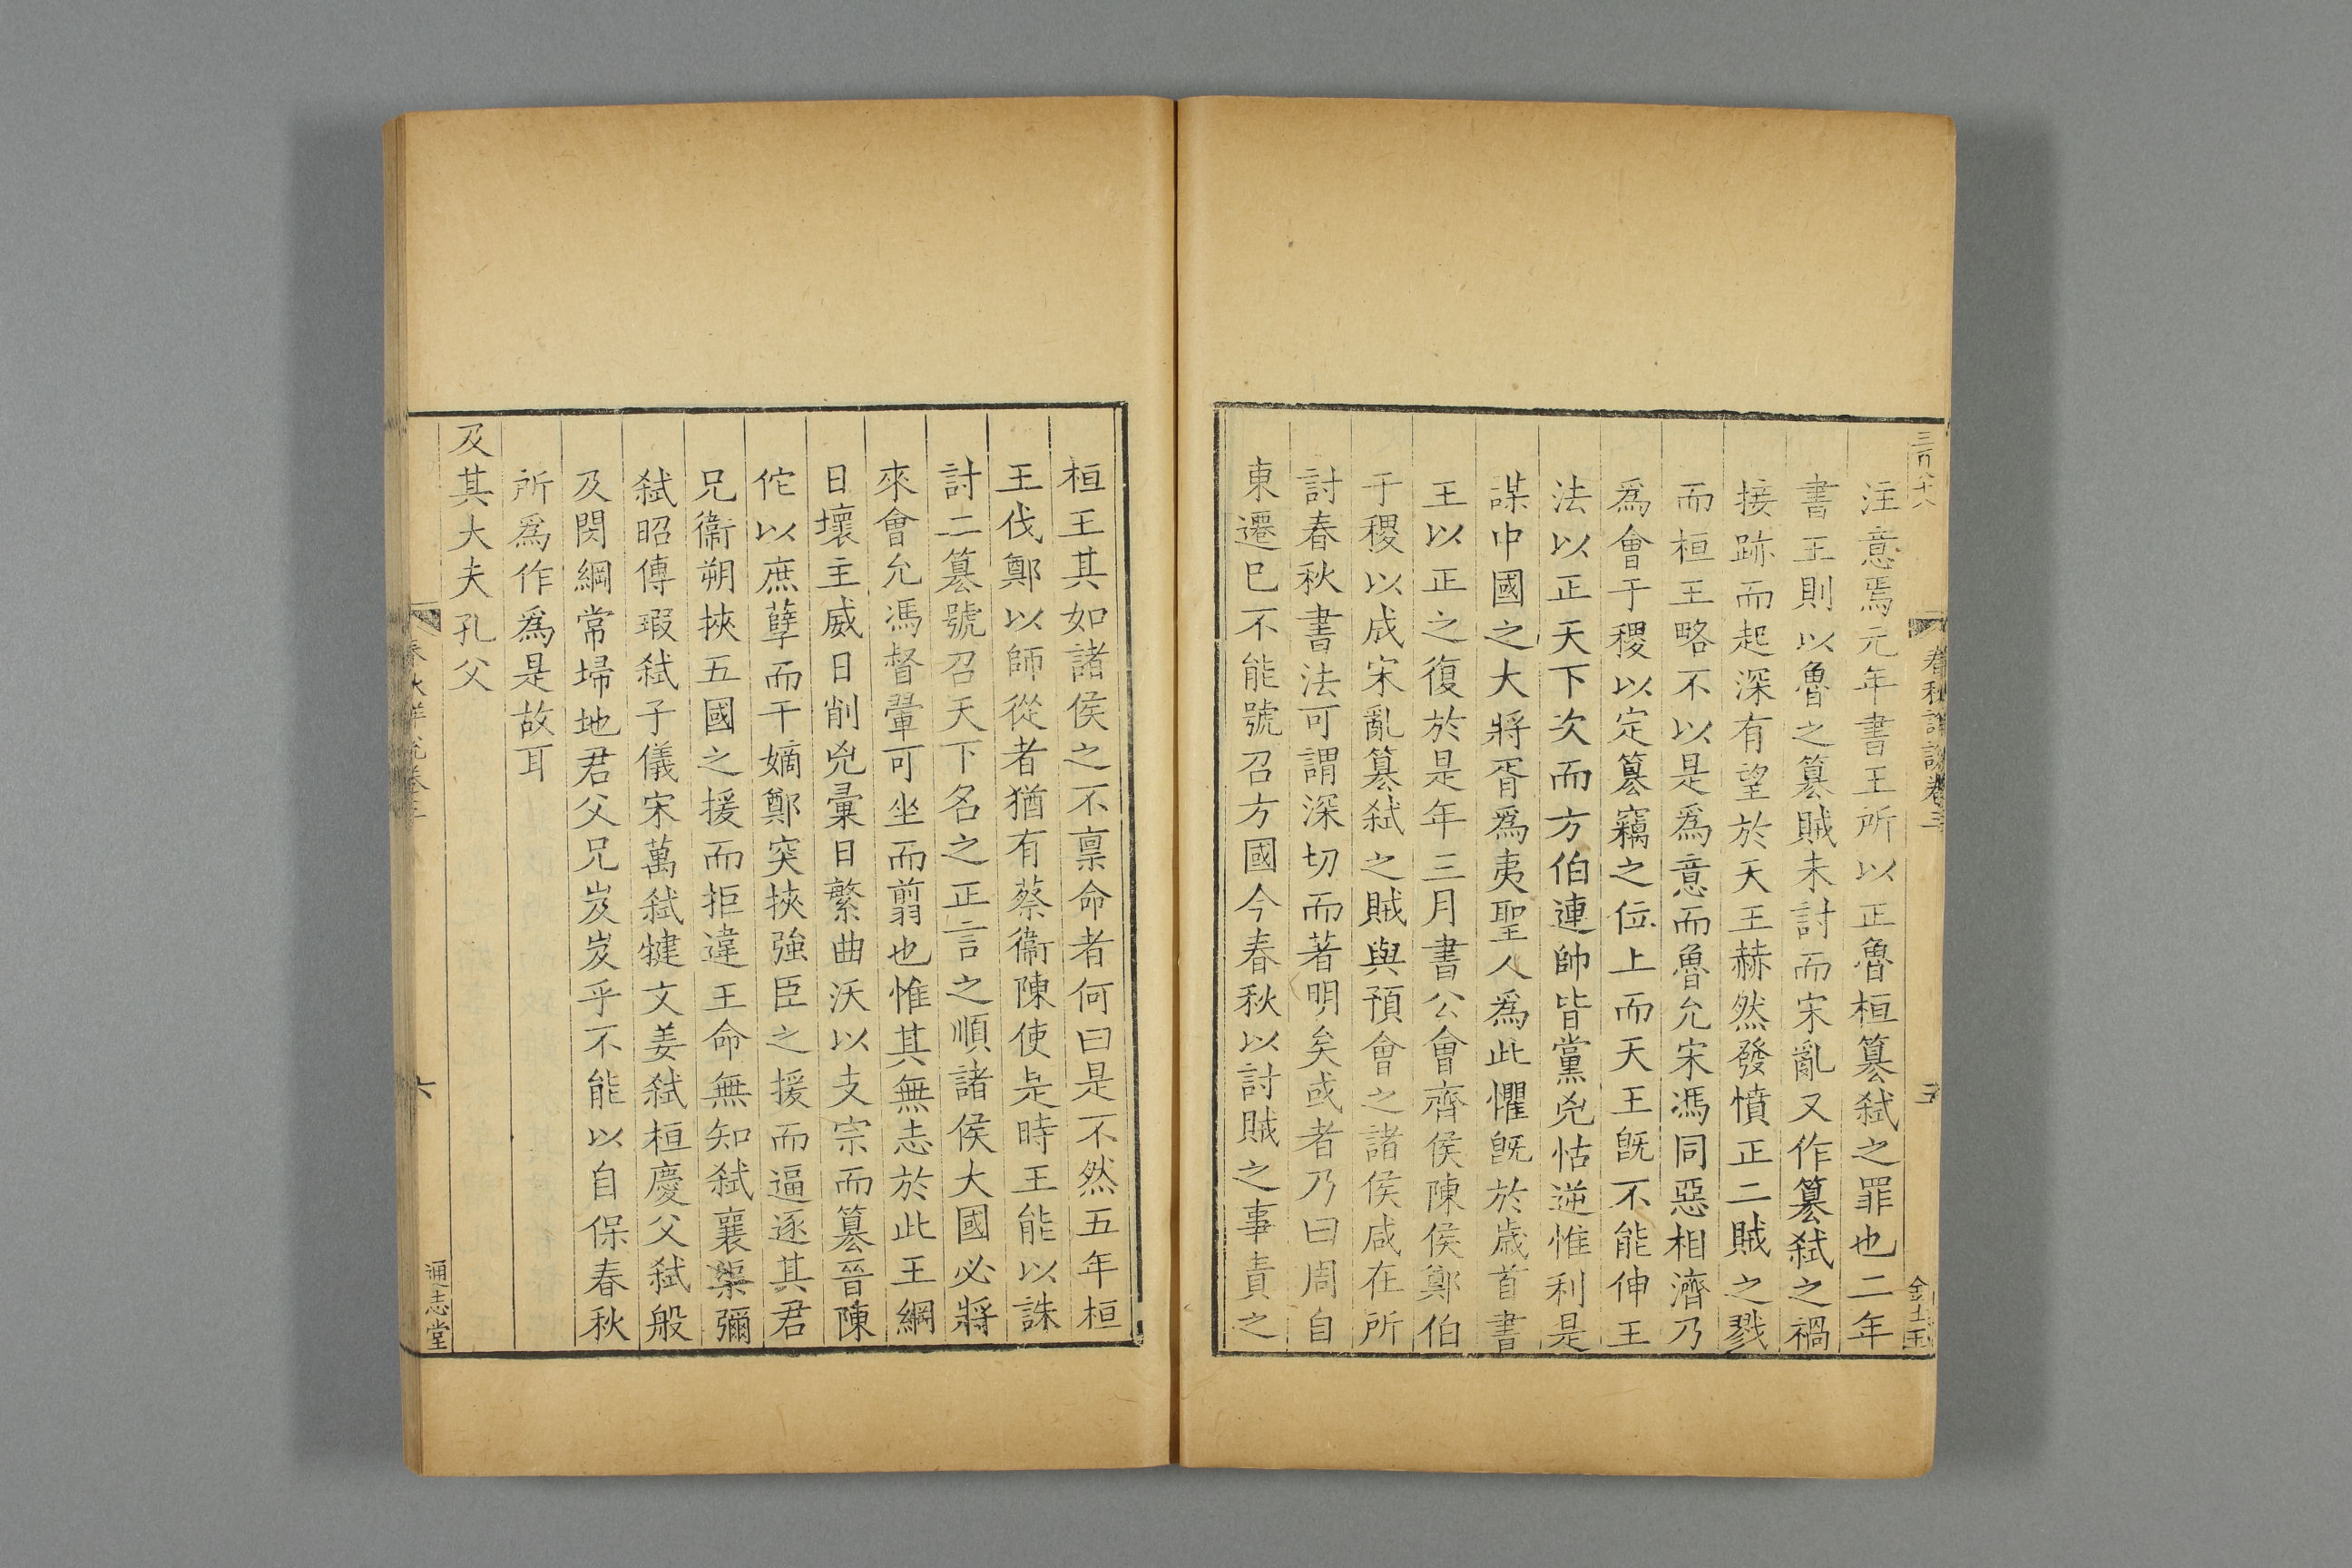 三百八十八
春秋詳說卷三
五
金士玉
注意焉元年書王所以正魯桓篡弑之罪也二年
書王則以魯之篡賊未討而宋亂又作篡弑之禍
接跡而起深有望於天王赫然發憤正二賊之戮
而桓王略不以是爲意而魯允宋馮同惡相濟乃
爲會于稷以定篡竊之位上而天王旣不能伸王
法以正天下次而方伯連帥皆黨兇怙逆惟利是
謀中國之大將胥爲夷聖人爲此懼旣於歲首書
王以正之復於是年三月書公會齊侯陳侯鄭伯
于稷以成宋亂篡弑之賊與預會之諸侯咸在所
討春秋書法可謂深切而著明矣或者乃曰周自
東遷已不能號召方國今春秋以討賊之事責之
桓王其如諸侯之不禀命者何曰是不然五年桓
王伐鄭以師從者猶有蔡衞陳使是時王能以誅
討二篡號召天下名之正言之順諸侯大國必將
來會允馮督翬可坐而翦也惟其無志於此王綱
日壞主威日削兇彙日繁曲沃以支宗而篡晉陳
佗以庶孽而干嫡鄭突挾強臣之援而逼逐其君
兄衞朔挾五國之援而拒違王命無知弑襄渠彌
弑昭傅瑕弑子儀宋萬弑捷文姜弑桓慶父弑般
及閔綱常埽地君父兄岌岌乎不能以自保春秋
所爲作爲是故耳
及其大夫孔父
春秋詳說卷三
六
通志堂